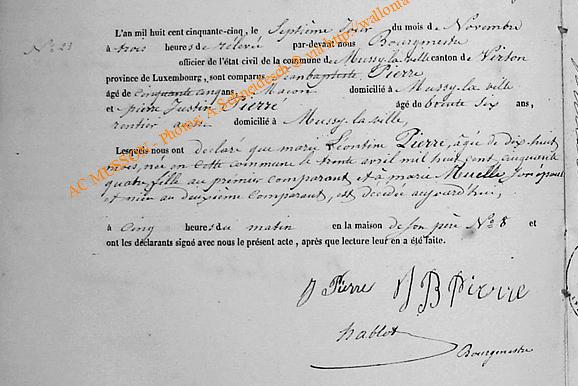 N° 23
L'an mil huit cent cinquante-cinq, le Septième Jour du mois de Novembre
à trois heures de relevée par-devant nous Bourgmestre
officier de l'état civil de la commune de Mussy-la-ville canton de Virton
province de Luxembourg, sont comparus Jean baptiste Pierre
âgé de cinquante ans, Maçon domicilié à Mussy-la ville
et pierre Justin Pierré âgé de trente Six ans,
rentier domicilié à Mussy-la ville,
Lesquels nous ont déclaré que marie Léontine Pierre, agée de dix huit
mois, née en cette commune le trente avril mil huit cent cinquante
quatre fille au premier comparant et à marie Muelle, son épouse
et nièce au deuxième comparant, est décédée aujourd'hui,
à cinq heures du matin en la maison de son père N° 8 et
ont les déclarants signé avec nous le présent acte, après que lecture leur en a été faite.
J Pierre J B Pierre
hablot
Bourgmestre
AC MUSSON - Photos: A Schneidesch @ via http://wallonia